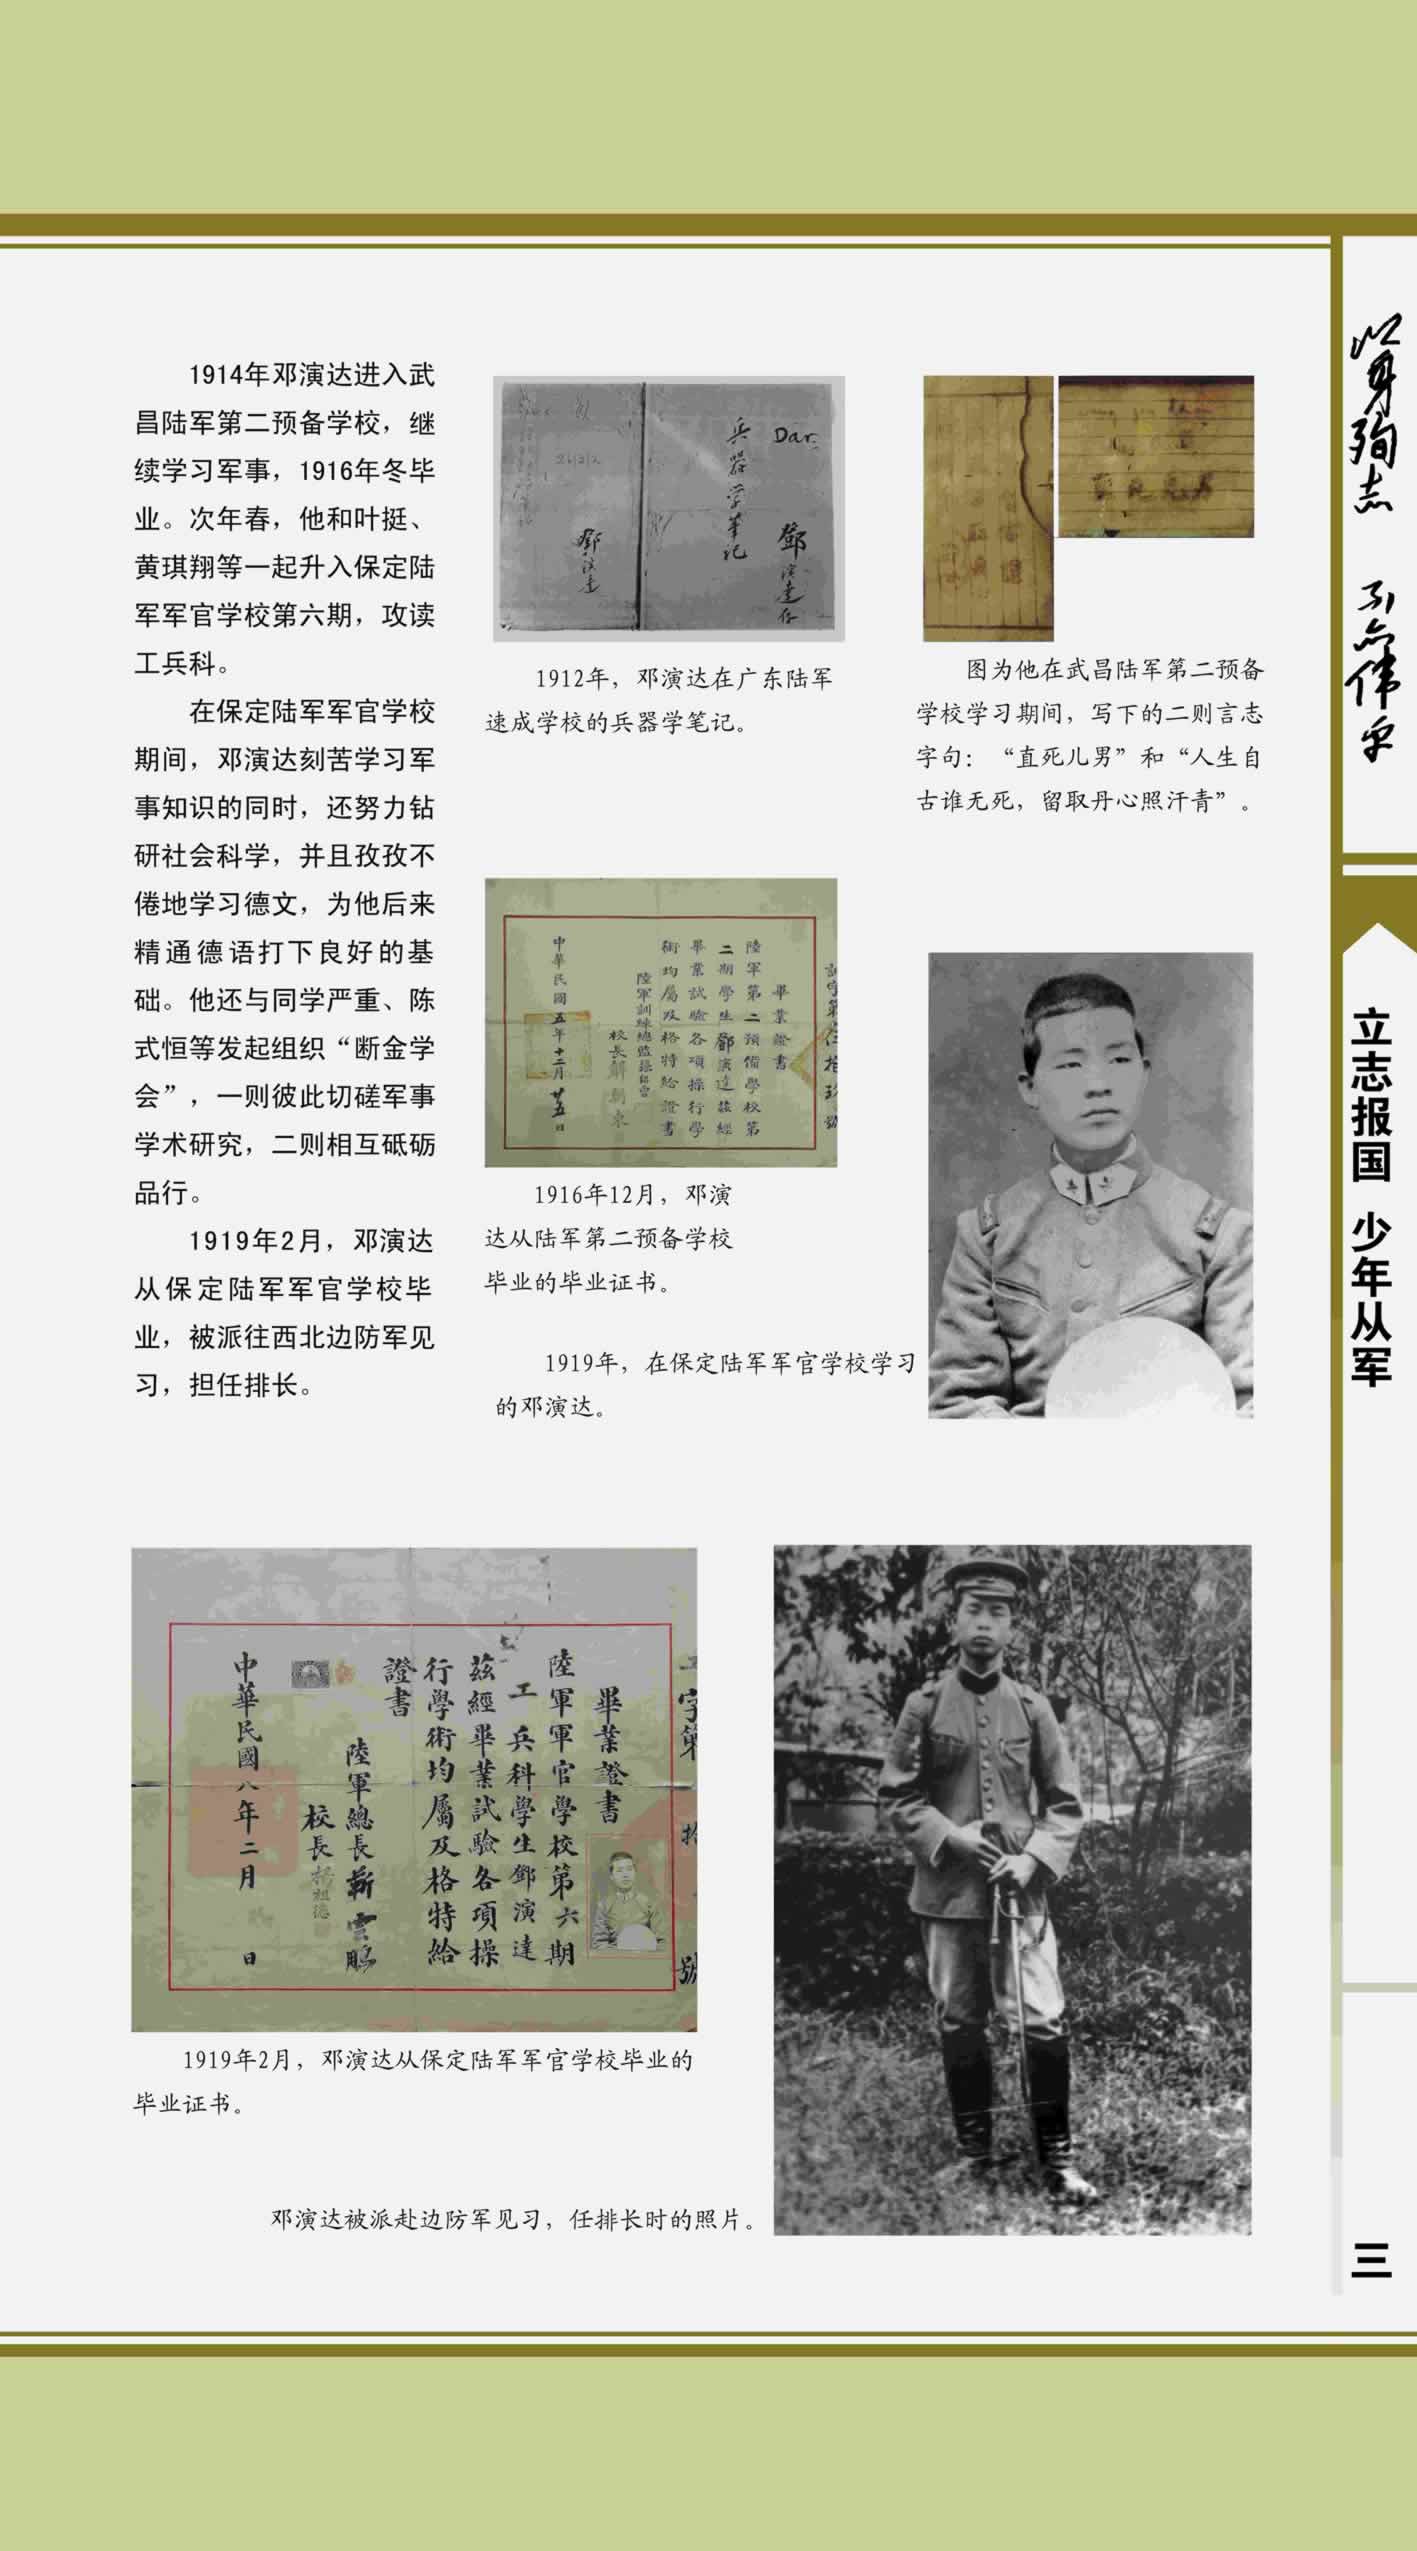 1914年邓演达进入武
昌陆军第二预备学校，继
续学习军事，1916年冬毕
业。次年春，他和叶挺、
黄琪翔等一起升入保定陆
军军官学校第六期，攻读
工兵科。
在保定陆军军官学校
期间，邓演达刻苦学习军
事知识的同时，还努力钻
研社会科学，并且孜孜不
倦地学习德文，为他后来
精通德语打下良好的基
础。他还与同学严重、陈
式恒等发起组织“断金学
会”，一则彼此切磋军事
学术研究，二则相互砥砺
品行。
1919年2月，邓演达
从保定陆军军官学校毕
业，被派往西北边防军见
习，担任排长。
Dar.
鄧演達仔
兵器学筆记
鄧演達
1912年，邓演达在广东陆军
速成学校的兵器学笔记。
图为他在武昌陆军第二预备
学校学习期间，写下的二则言志
字句：“直死儿男”和“人生自
古谁无死，留取丹心照汗青”。
畢業證書
陸軍第二預備學校第
二期學生鄧演達茲經
畢業試驗各項操行學
術均屬及格特給證書
陸軍訓練總監
校長
中華民國五年十二月廿五日
1916年12月，邓演
达从陆军第二预备学校
毕业的毕业证书。
1919年，在保定陆军军官学校学习
的邓演达。
畢業證書
陸軍軍官學校第六期
工兵科學生鄧演達
茲經畢業試驗各項操
行學術均屬及格特給
證書
陸軍總長靳雲鵬
校長楊祖德
中華民國八年二月 日
1919年2月，邓演达从保定陆军军官学校毕业的
毕业证书。
邓演达被派赴边防军见习，任排长时的照片。
以身殉志 不亦伟乎
立志报国 少年从军
三